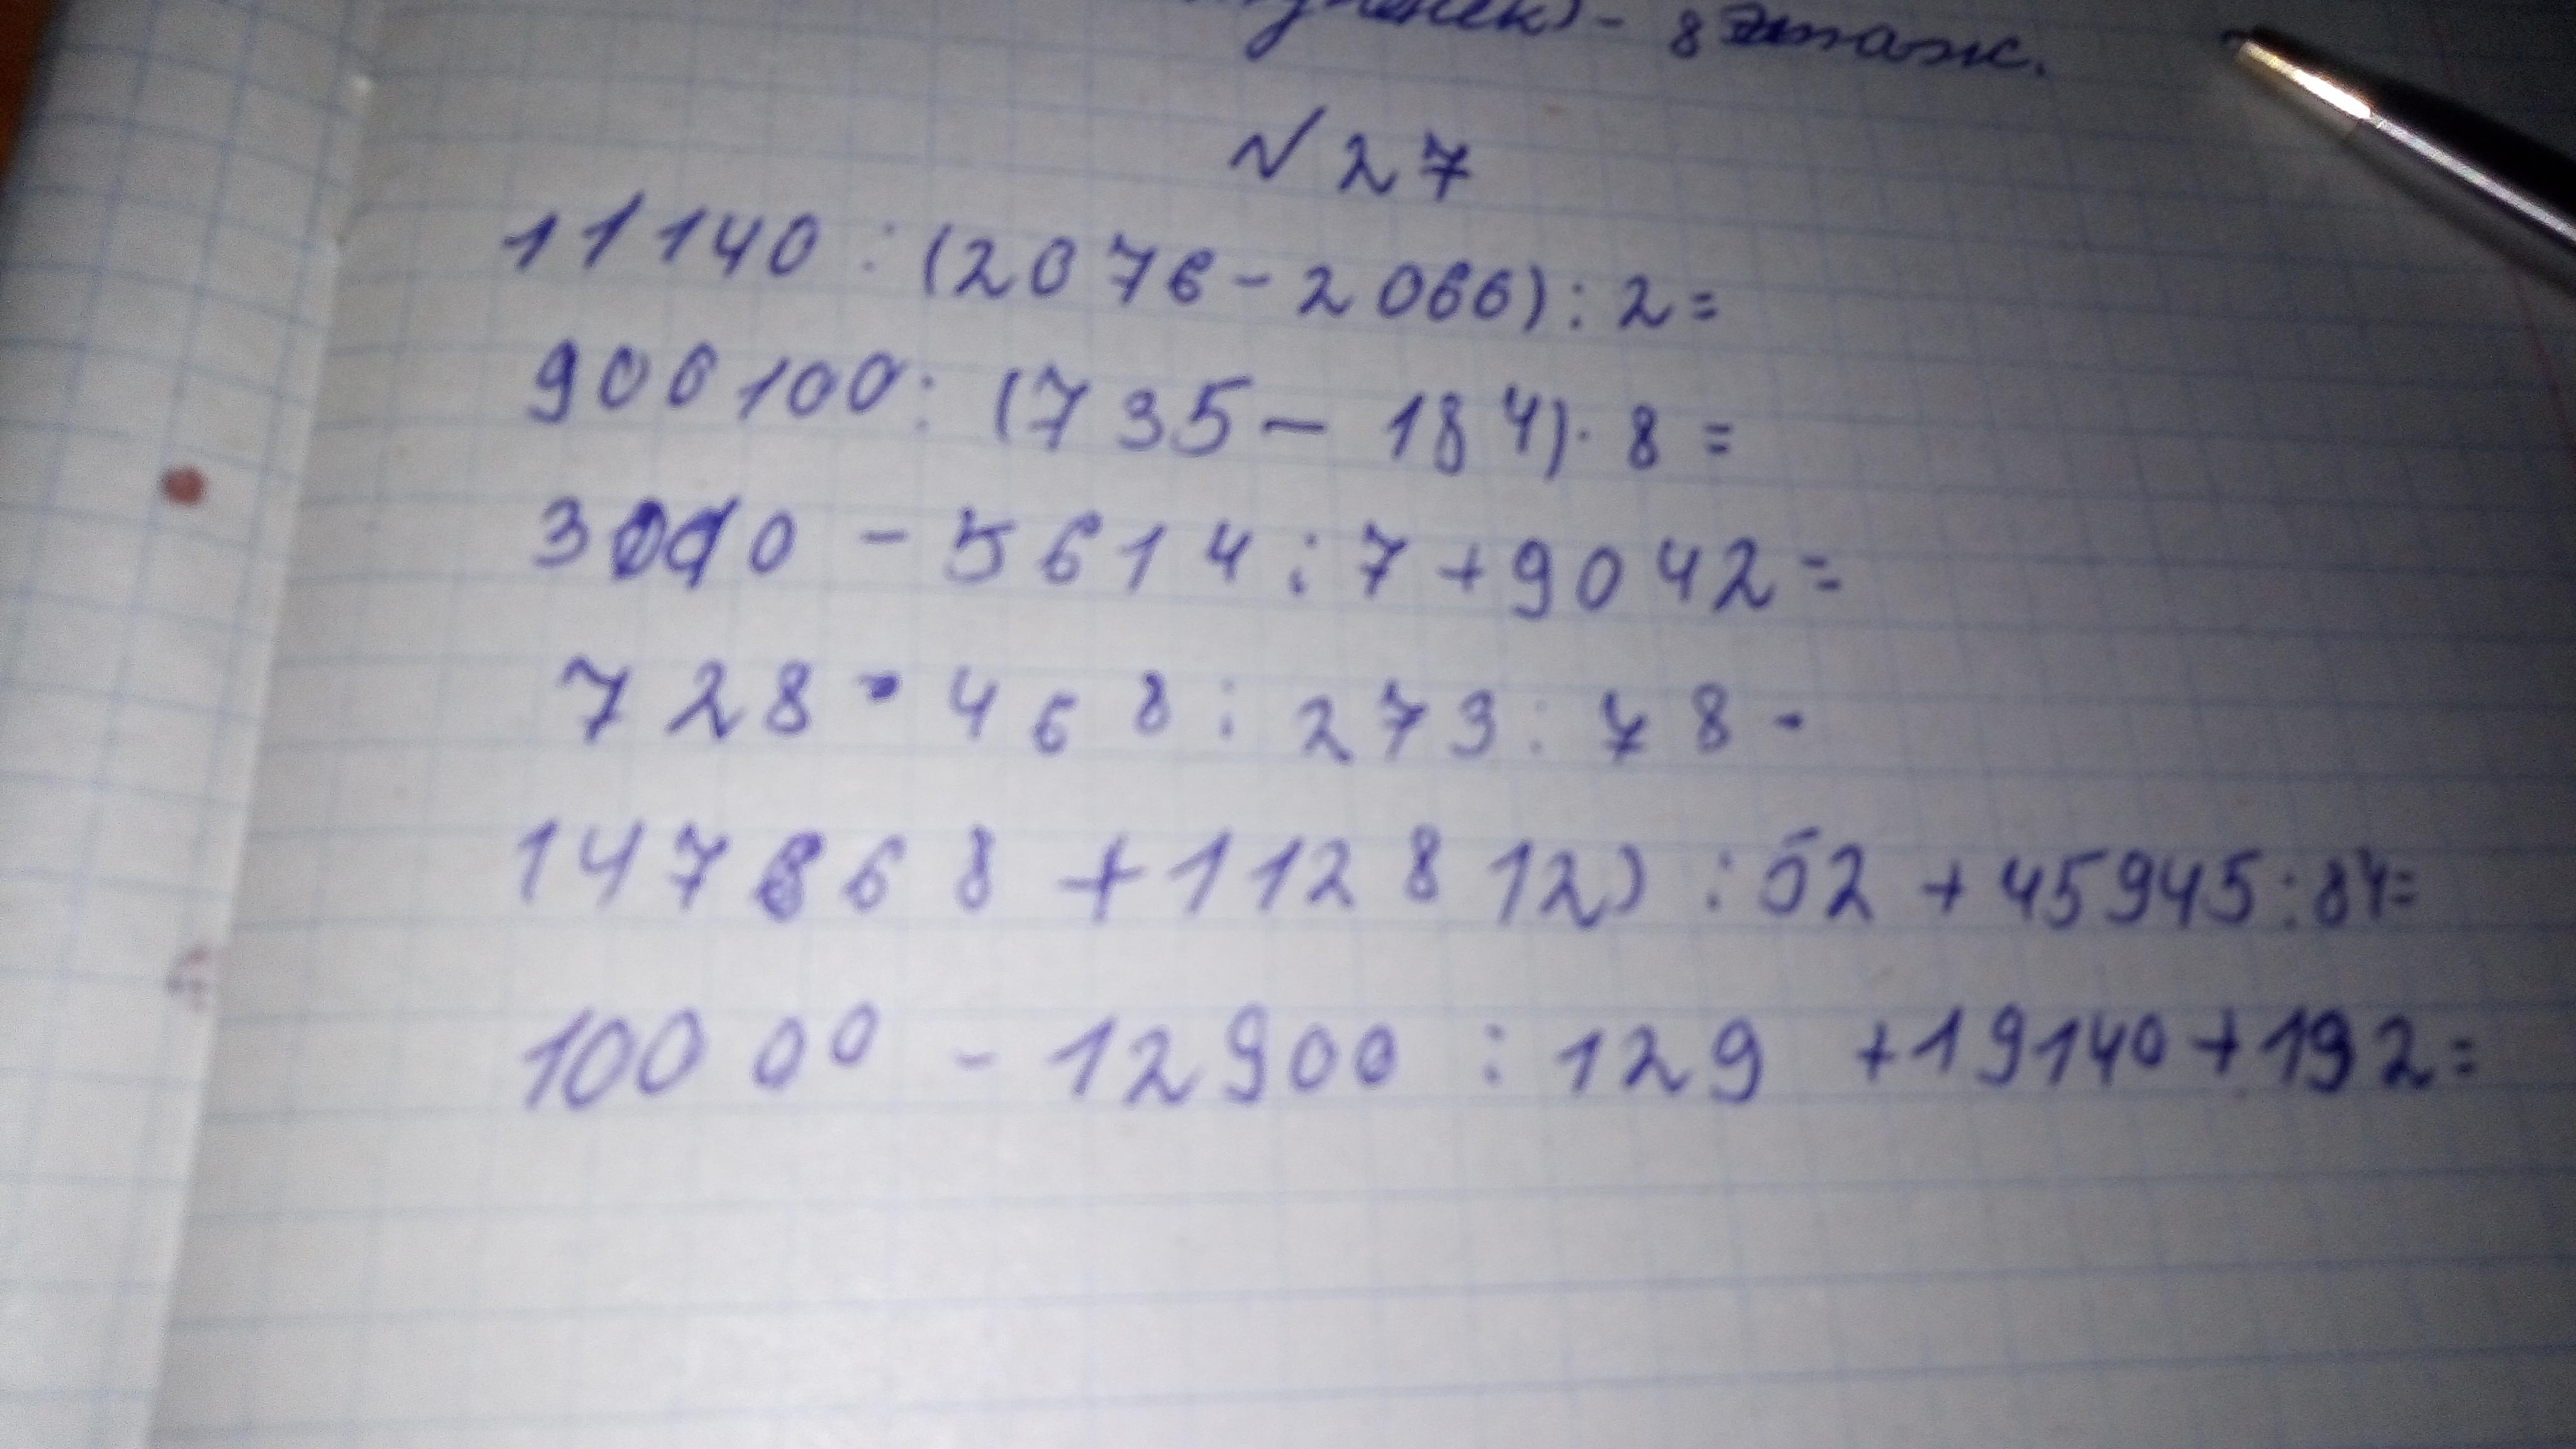 - 8 этаж.
√ 27
11140 : (2076 - 2066) : 2 =
900100 : (735 - 184) · 8 =
3010 - 5614 : 7 + 9042 =
728 · 468 : 273 : 78 -
147868 + 112812) : 52 + 45945 : 84 =
100000 - 12900 : 129 + 19140 + 192 =